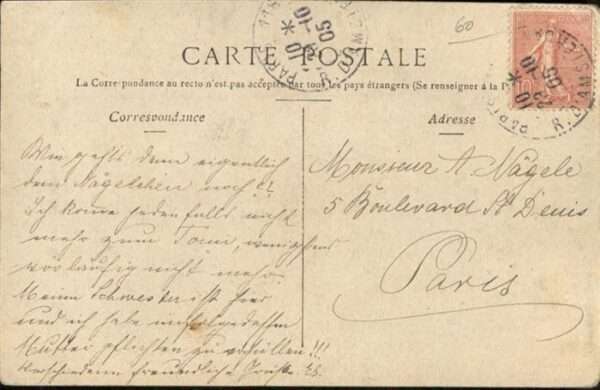 CARTE POSTALE
La Correspondance au recto n'est pas acceptée par tous les pays étrangers (Se renseigner à la P
Correspondance
Adresse
60
10
05-10
10
23
05
Wie gehts denn eigentlich
dem Nägelchen noch?!
Ich komme jedenfalls nicht
mehr zum Tanz, wenigstens
vorläufig nicht mehr.
Meine Schwester ist hier
und ich habe infolgedessen
Mutterpflichten zu erfüllen!!!
Verschiedene freundliche Grüße
Monsieur A. Nägele
5 Boulevard St Denis
Paris